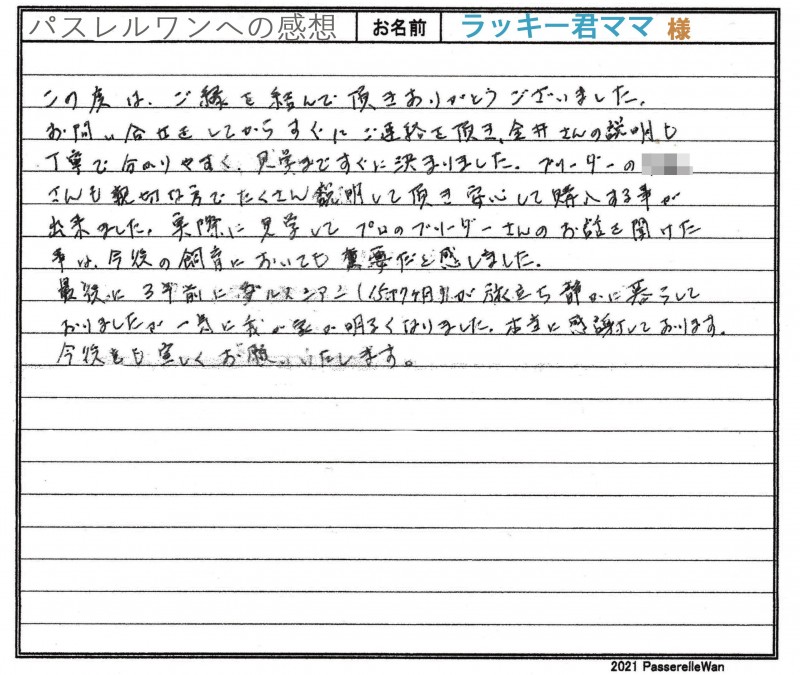 パスレルワンへの感想 お名前 ラッキー君ママ 様
この度は、ご縁を結んで頂きありがとうございました。
お問い合せをしてからすぐにご連絡を頂き、金井さんの説明も
丁寧で分かりやすく、見学まですぐに決まりました。ブリーダーの
さんも親切な方でたくさん説明して頂き安心して購入する事が
出来ました。実際に見学してプロのブリーダーさんのお話を聞けた
事は、今後の飼育においても重要だと感しました。
最後に3年前に(15才7ヶ月)が旅立ち静かに暮らして
おりましたが一気に我が家が明るくなりました。本当に感謝しております。
今後とも宜しくお願いいたします。
2021 PasserelleWan